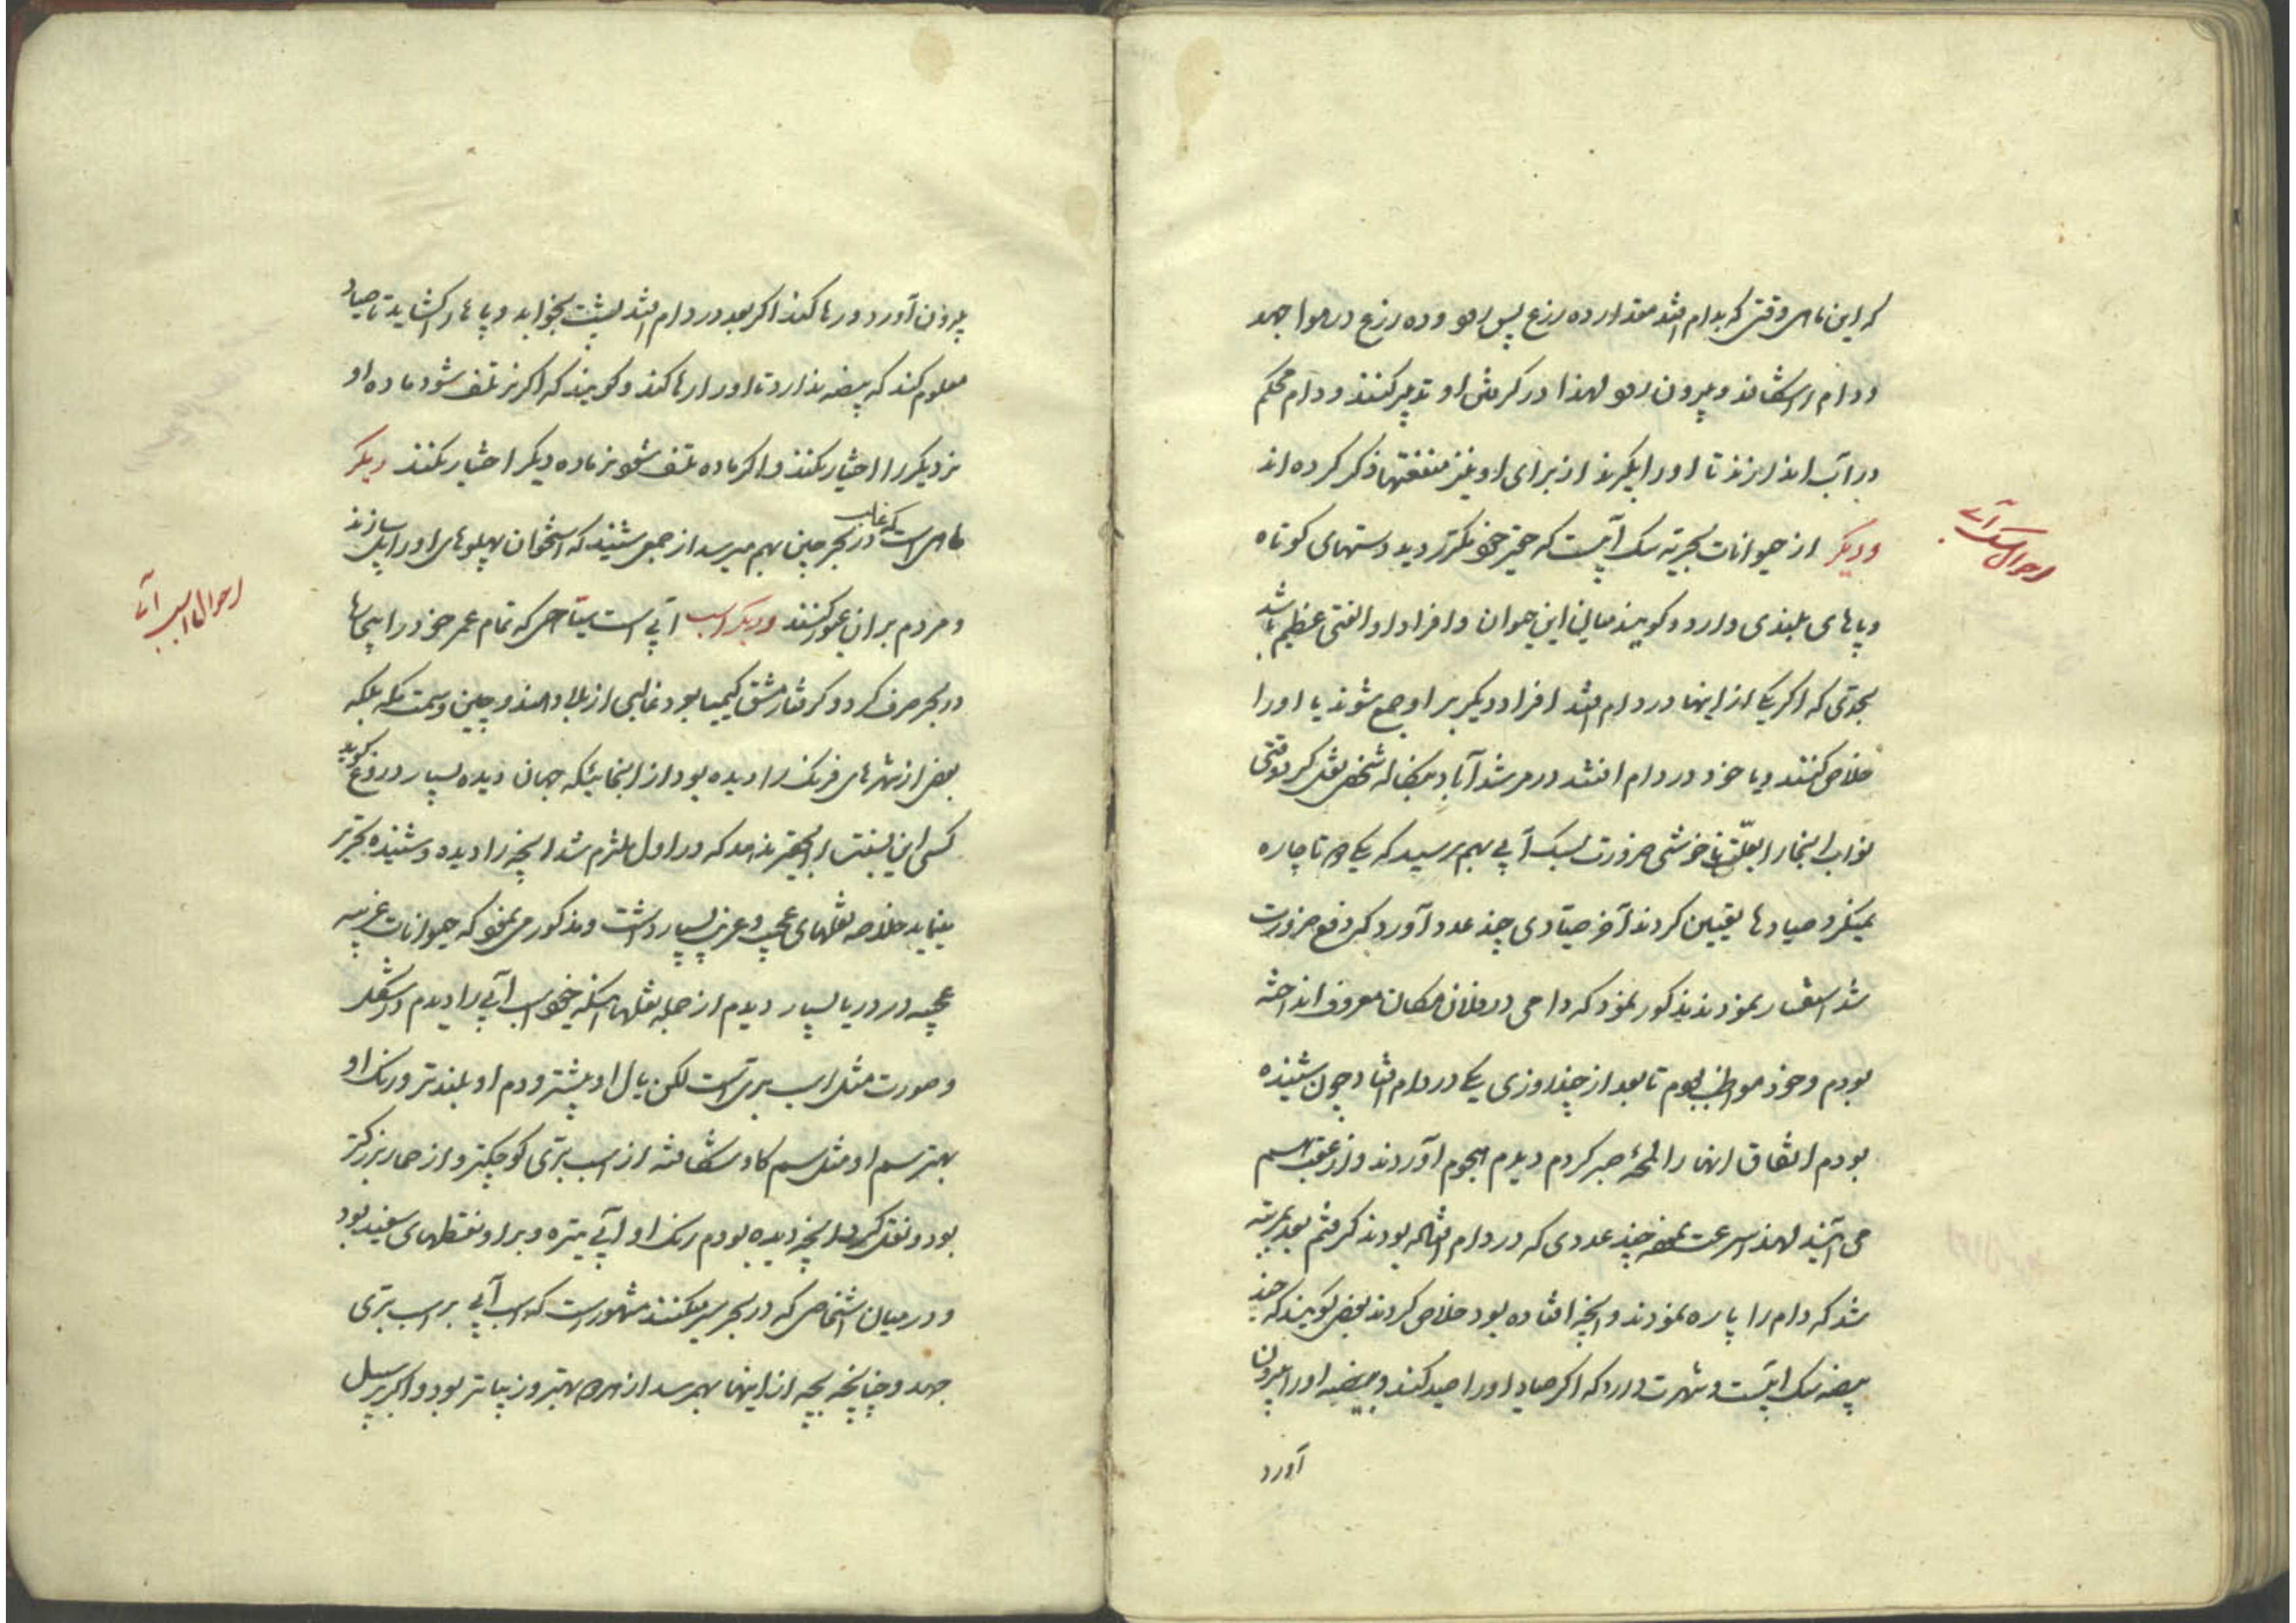 که این ماهی وقتی که بدام افتد مقدار ده زرع پس رود و ده زرع در هوا جهد
و دام را شکافد و بیرون رود لهذا در گرفتن او تدبیر کنند و دام محکم
در آب اندازند تا او را بگیرند از برای او نیز منفعتها ذکر کرده اند
ودیگر از حیوانات بحریه سک آبیست که حقیر خود مکرر دید دستهای کوتاه
و پاهای بلندی دارد و گویند میان این حیوان و افراد او الفتی عظیم باشد
بحدّی که اگر یکی از اینها در دام افتد افراد دیگر بر او جمع شوند یا او را
خلاص کنند و یا خود در دام افتند در مرشد آباد بنکاله شخصی نقل کرد وقتی
نواب اینجا را بعلّت ناخوشی ضرورت بسک آبی بهم رسید که یکی هم تا چاره
صیادها تعیین کردند آخر صیّادی چند عدد آورد که دفع ضرورت
شد استفسار نمودند مذکور نمود که دامی در فلان مکان معروف انداخته
بودم و خود مواظب بودم تا بعد از چند روزی یکی در دام افتاد چون شنیده
بودم اتفاق انها را لمحهٔ صبر کردم دیدم هجوم آوردند و از عقب هم
می آیند لهذا بسرعت چند عددی که در دام افتاده بودند گرفتم بعد بمرتبه
شد که دام را پاره نمودند و آنچه افتاده بود خلاص کردند بعضی گویند که جند
بیضه سک آبیست و شهرت دارد که اگر صیاد او را صید کند و بیضه او را بیرون
آورد
احوال سک آبی
بیرون آورد و رها کند اگر بعد در دام افتد بپشت بخوابد و پاها را گشاید تا صیاد
معلوم کند که بیضه ندارد تا او را رها کند و گویند که اگر نر تلف شود ماده او
نر دیگر را اختیار نکند و اگر ماده تلف شود نر ماده دیگر اختیار نکند دیگر
ماهی است که غالب در بحر چین بهم میرسد از جمعی شنید که استخوان پهلوهای او را پل سازند
و مردم بر ان عبور کنند ودیگر اسب آبی است سیّاحی که تمام عمر خود را
در بحر صرف کرد و گرفتار مشق کیمیا بود غالبی از بلاد هند و چین و سمت مکه بلکه
بعضی از شهرهای فرنک را دیده بود از انجائیکه جهان دیده بسیار دروغ گوید
کسی این نسبت را بحقیر ندهد که در اول ملتزم شد آنچه را دیده و شنیده تحریر
نماید خلاصه نقلهای عجیب و غریب بسیار داشت و مذکور می نمود که حیوانات غریبه
عجیبه در دریا بسیار دیدم از جمله نقلها اینکه خود اسب آبی را دیدم در شکل
و صورت مثل اسب برّیست لکن یال او بیشتر و دم او بلندتر و رنک او
بهتر سم او مثل سم گاو شکافته از اسب برّی کوچکتر و از حمار بزرکتر
بود و نقل کرد آنچه دیده بودم رنک او آبی تیره و بر او نقطهای سفید بود
و در میان اشخاصی که در بحر سیر میکنند مشهور است که اسب آبی بر اسب برّی
جهد و چنانچه بچه از اینها بهم رسد از همه بهتر و زیباتر بود و اگر پر سیل
احوال اسب آبی